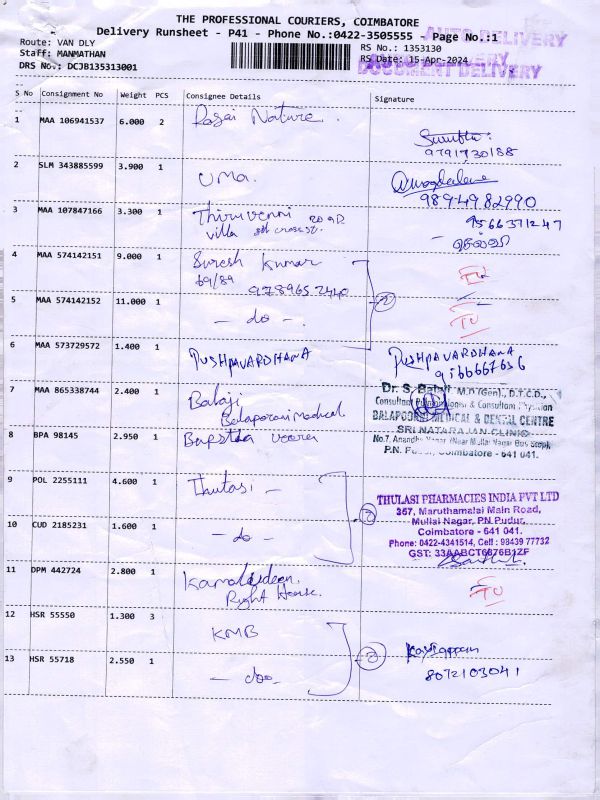 THE PROFESSIONAL COURIERS, COIMBATORE
Delivery Runsheet - P41 - Phone No.:0422-3505555 - Page No.:1
AUTO DELIVERY
Route: VAN DLY
RS No.: 1353130
Staff: MANMATHAN
RS Date: 15-Apr-2024
DRS No.: DCJB135313001
DOCUMENT DELIVERY
S No Consignment No Weight PCS Consignee Details Signature
1 MAA 106941537 6.000 2 Rasai Nature.
9791730188
2 SLM 343885599 3.900 1 Uma.
9894982990
3 MAA 107847166 3.300 1 Thiruvenni ROAD
villa 8th cross st.
9566371247
4 MAA 574142151 9.000 1 Suresh Kumar
69/89
9789652440
TU
5 MAA 574142152 11.000 1 - do -
2
TU
6 MAA 573729572 1.400 1 PUSHPAVARDHANA PUSHPAVARDHANA
9166667636
7 MAA 865338744 2.400 1 Balaji
Balapoorani medical
Dr. S. Balaji M.D (Gen)., D.T.C.D.,
Consultant Pulmonologist & Consultant Physician
BALAPOORANI MEDICAL & DENTAL CENTRE
SRI NATARAJAN CLINIC
No.7, Anandha Nagar (Near Mullai Nagar Bus Stop)
P.N. Pudur, Coimbatore - 641 041.
8 BPA 98145 2.950 1
9 POL 2255111 4.600 1 Thulasi -
10 CUD 2185231 1.600 1 - do -
2
THULASI PHARMACIES INDIA PVT LTD
357, Maruthamalai Main Road,
Mullai Nagar, PN Pudur,
Coimbatore - 641 041.
Phone: 0422-4341514, Cell : 98439 77732
GST: 33AABCT6676B1ZF
11 DPM 442724 2.800 1
Right House.
TU
12 HSR 55550 1.300 3 KMB
13 HSR 55718 2.550 1 - do -
8072103041